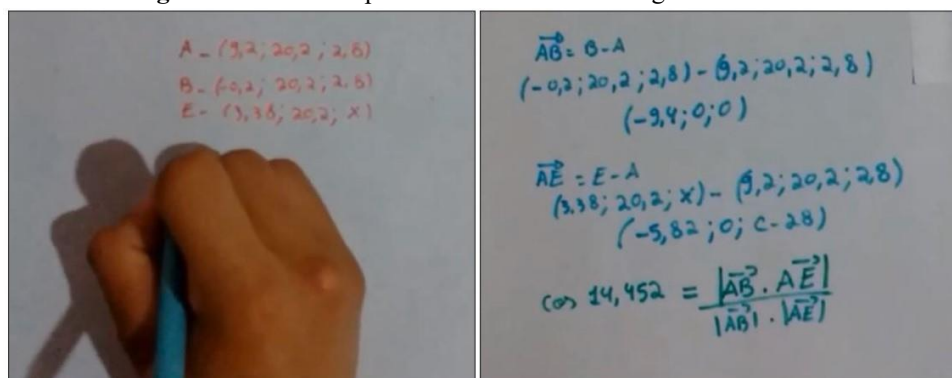 A - (9,2; 20,2; 2,8)
B - (-0,2; 20,2; 2,8)
E - (3,38; 20,2; x)
AB = B - A
(-0,2; 20,2; 2,8) - (9,2; 20,2; 2,8)
(-9,4; 0; 0)
AE = E - A
(3,38; 20,2; x) - (9,2; 20,2; 2,8)
(-5,82; 0; C - 28)
cos 14,452 = |AB . AE|
|AB| . |AE|